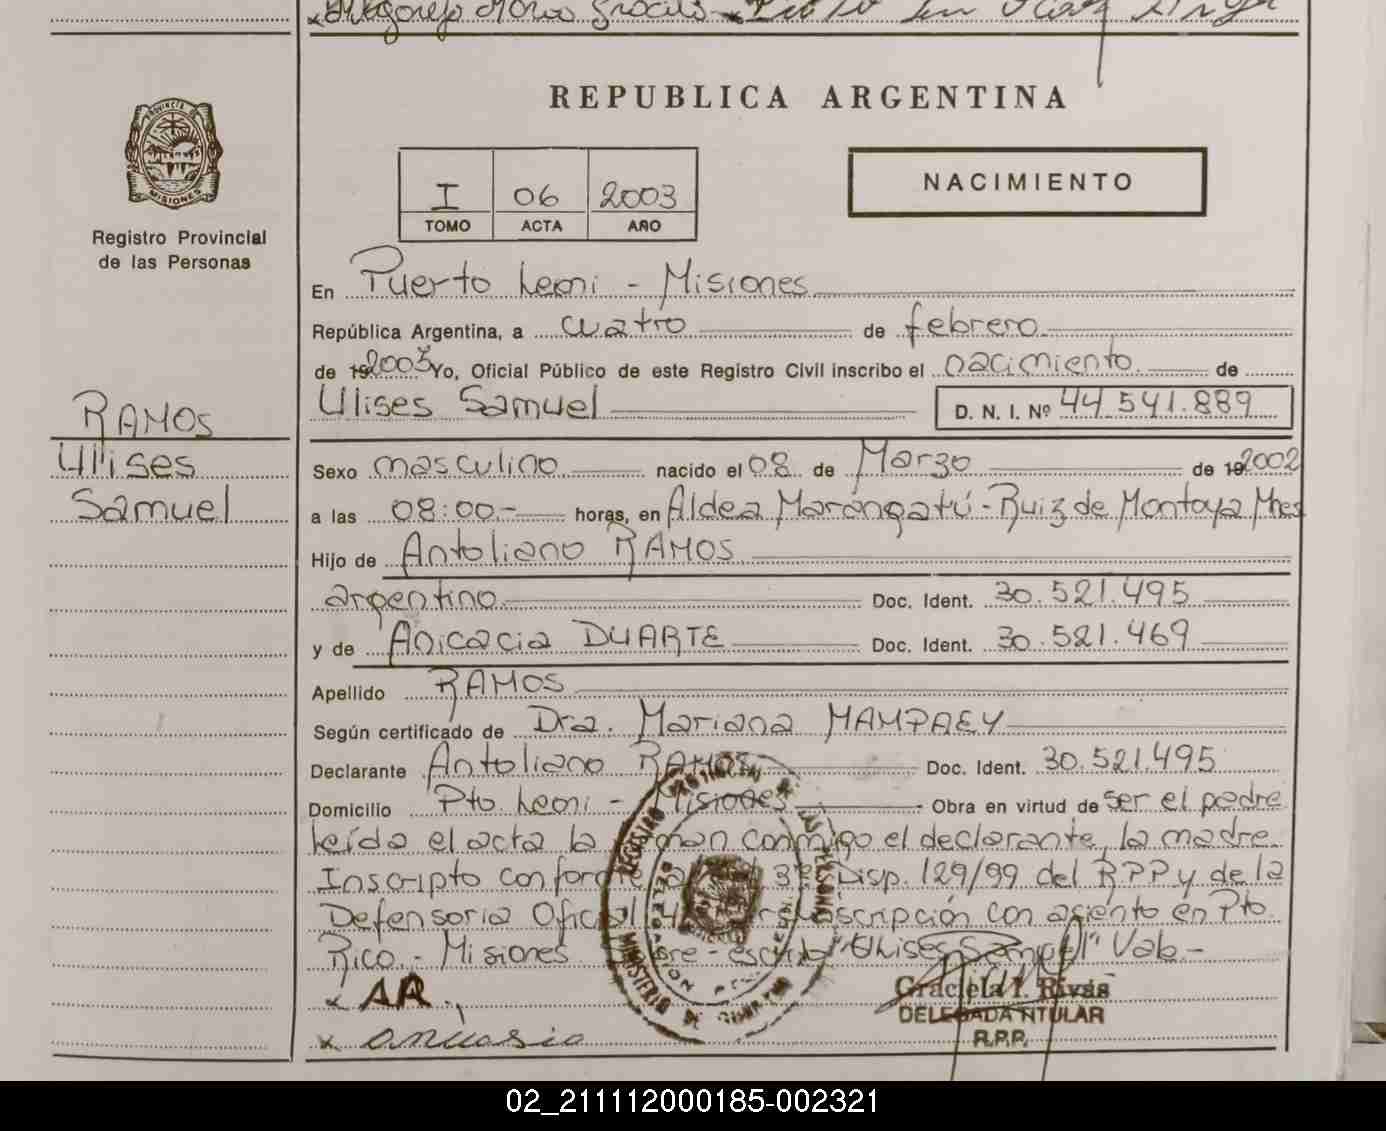 REPUBLICA ARGENTINA
PROVINCIA DE MISIONES
Registro Provincial
de las Personas
I 06 2003
TOMO ACTA AÑO
NACIMIENTO
En Puerto Leoni - Misiones
República Argentina, a cuatro de febrero
de 19 2003 Yo, Oficial Público de este Registro Civil inscribo el nacimiento de
Ulises Samuel D. N. I. Nº 44.541.889
RAMOS
Ulises
Samuel
Sexo masculino nacido el 08 de Marzo de 19 2002
a las 08:00.- horas, en Aldea Marangatú - Ruiz de Montoya Mnes
Hijo de Antoliano RAMOS
argentino Doc. Ident. 30.521.495
y de Anicacia DUARTE Doc. Ident. 30.521.469
Apellido RAMOS
Según certificado de Dra. Mariana MAMPAEY
Declarante Antoliano RAMOS Doc. Ident. 30.521.495
Domicilio Pto. Leoni - Misiones Obra en virtud de ser el padre
leída el acta la firman conmigo el declarante, la madre.
Inscripto conforme 3º Disp. 129/99 del RPP y de la
Defensoria Oficial scripción con asiento en Pto.
Rico.- Misiones bre-escrito "Ulises Samuel" Vale.-
x AR
x anicasia
REGISTRO PROVINCIAL DE LAS PERSONAS
MINISTERIO DE GOBIERNO
DELEGACION
Graciela I. Rivas
DELEGADA TITULAR
R.P.P.
02_211112000185-002321